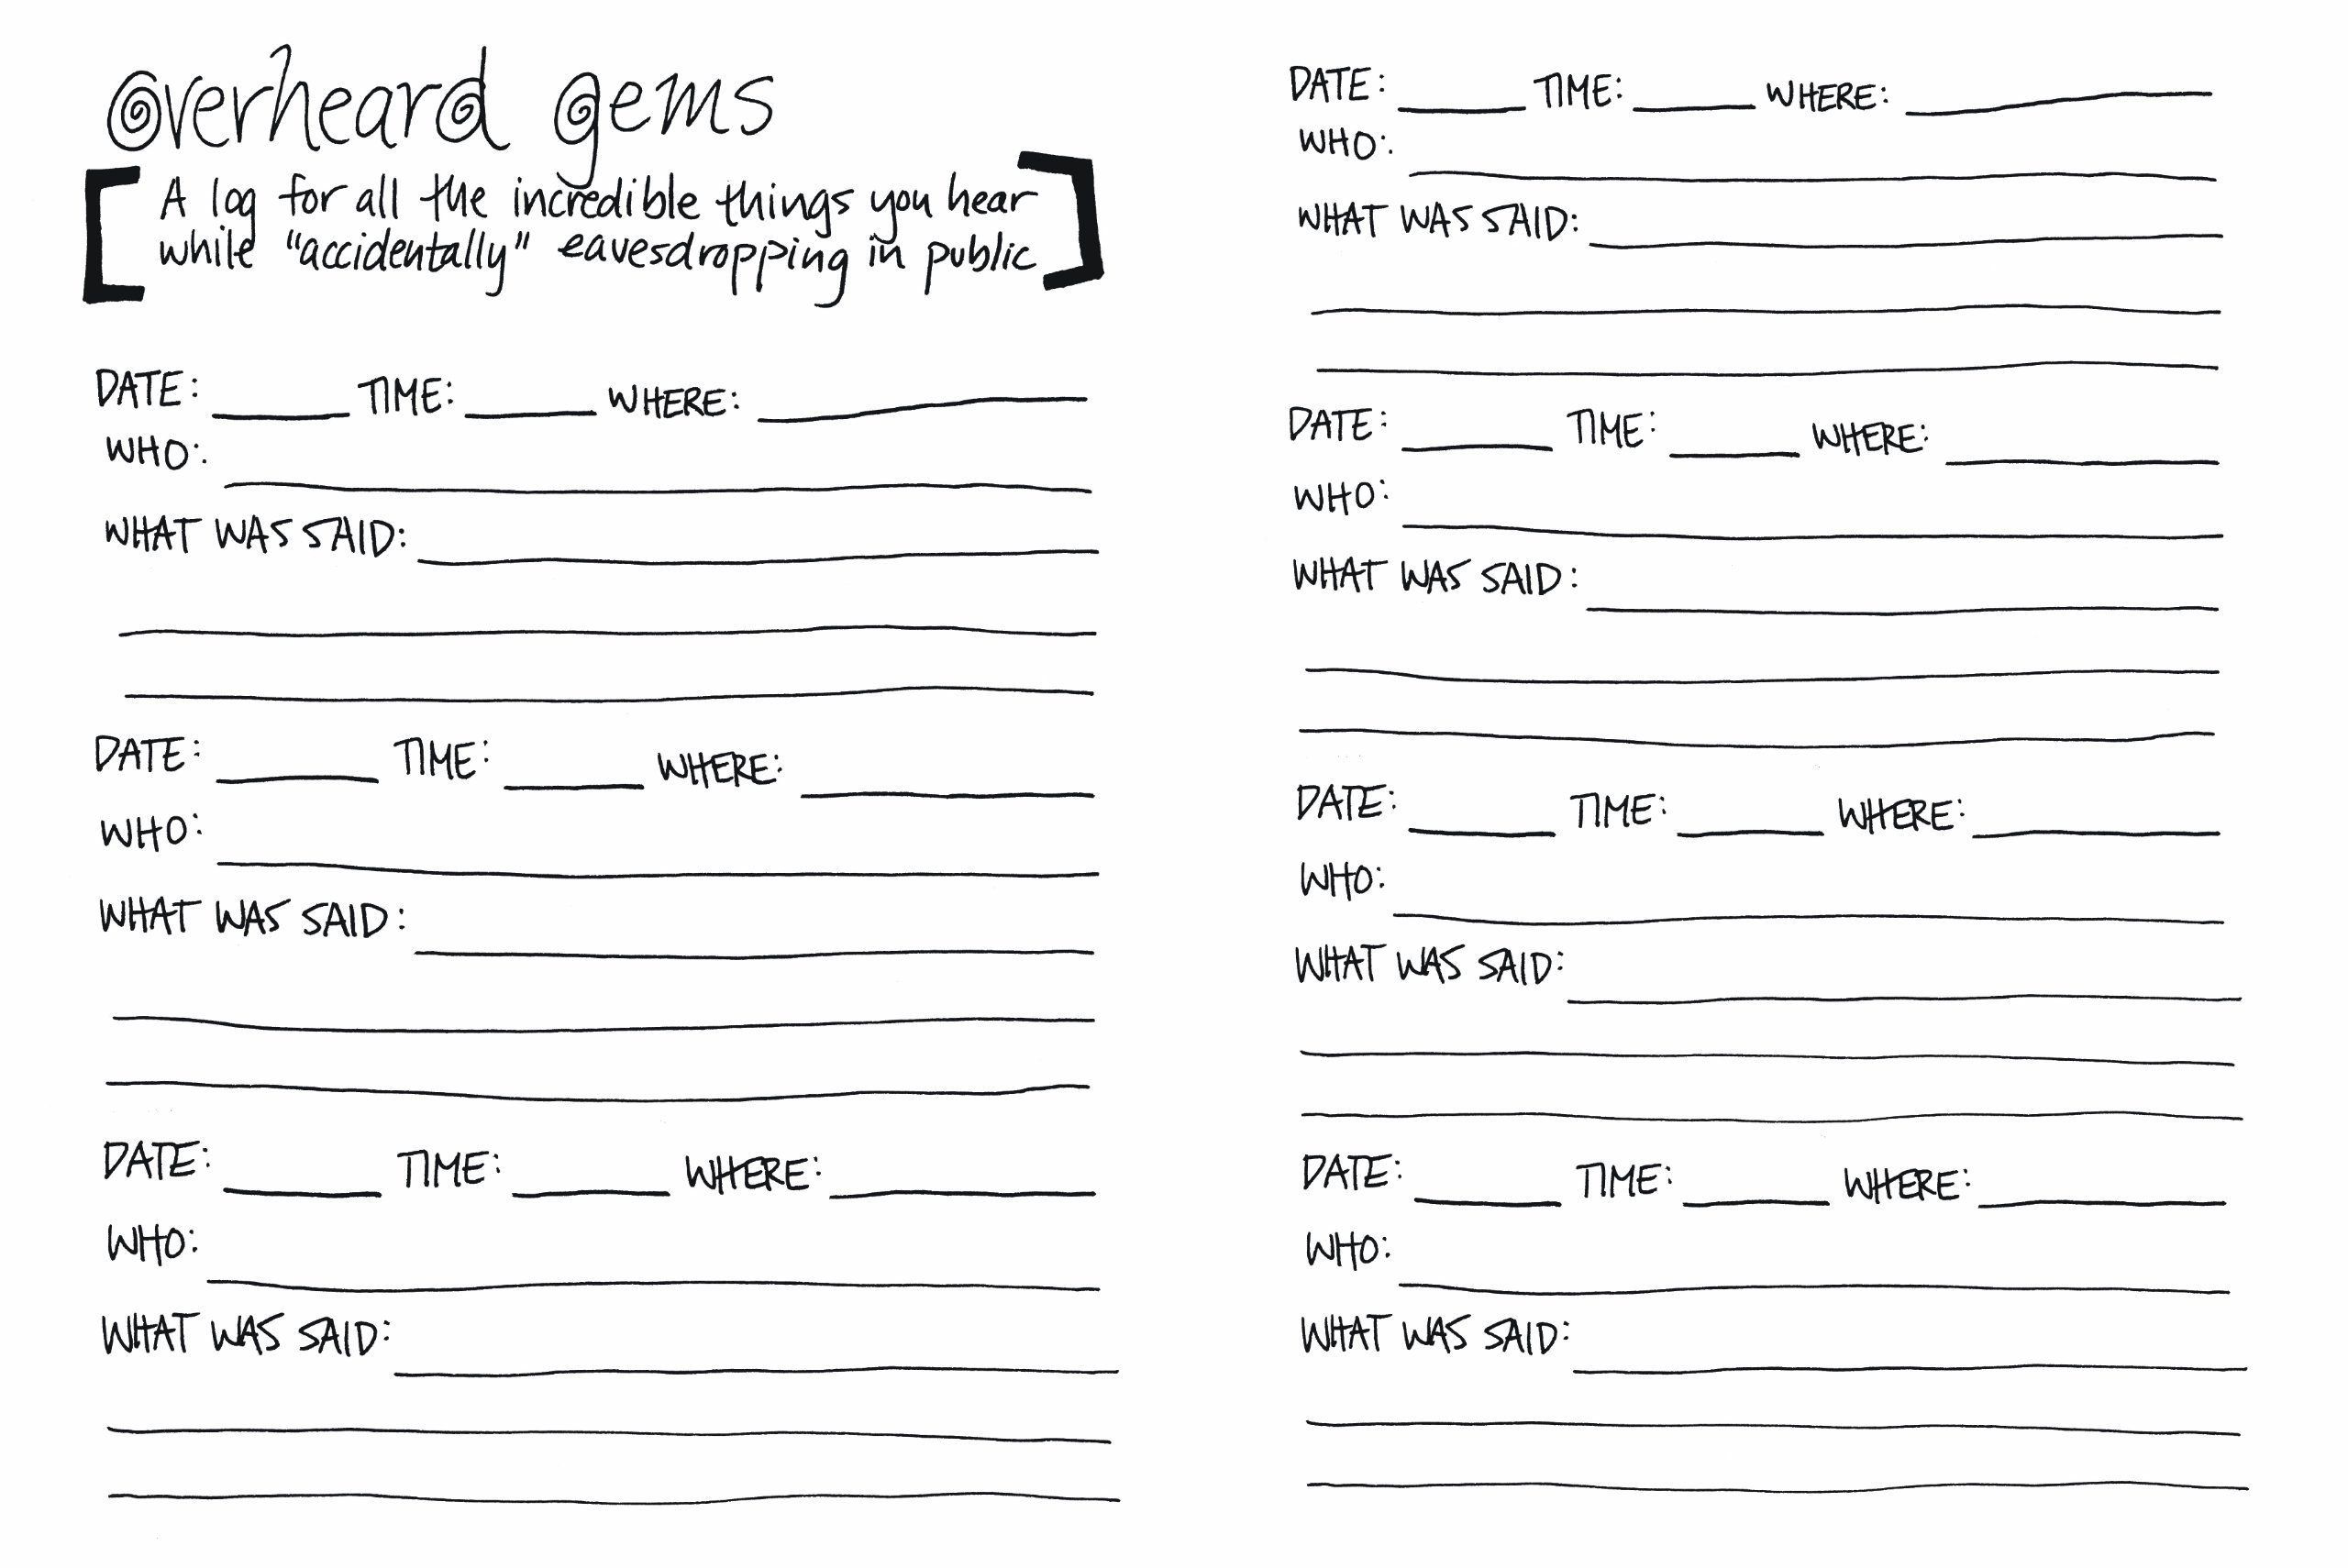 overheard gems
[A log for all the incredible things you hear
while "accidentally" eavesdropping in public]
DATE: TIME: WHERE:
WHO:
WHAT WAS SAID:
DATE: TIME: WHERE:
WHO:
WHAT WAS SAID:
DATE: TIME: WHERE:
WHO:
WHAT WAS SAID:
DATE: TIME: WHERE:
WHO:
WHAT WAS SAID:
DATE: TIME: WHERE:
WHO:
WHAT WAS SAID:
DATE: TIME: WHERE:
WHO:
WHAT WAS SAID:
DATE: TIME: WHERE:
WHO:
WHAT WAS SAID: